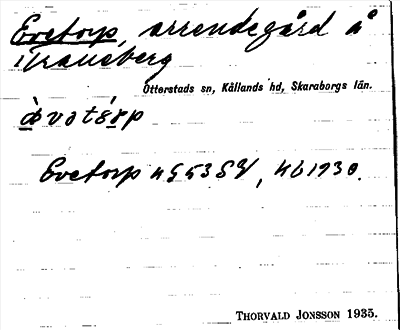 Evetorp, arrendegård å
Traneberg
Otterstads sn, Kållands hd, Skaraborgs län.
àvətórp
Evetorp nG53SV, kb1930.
THORVALD JONSSON 1935.